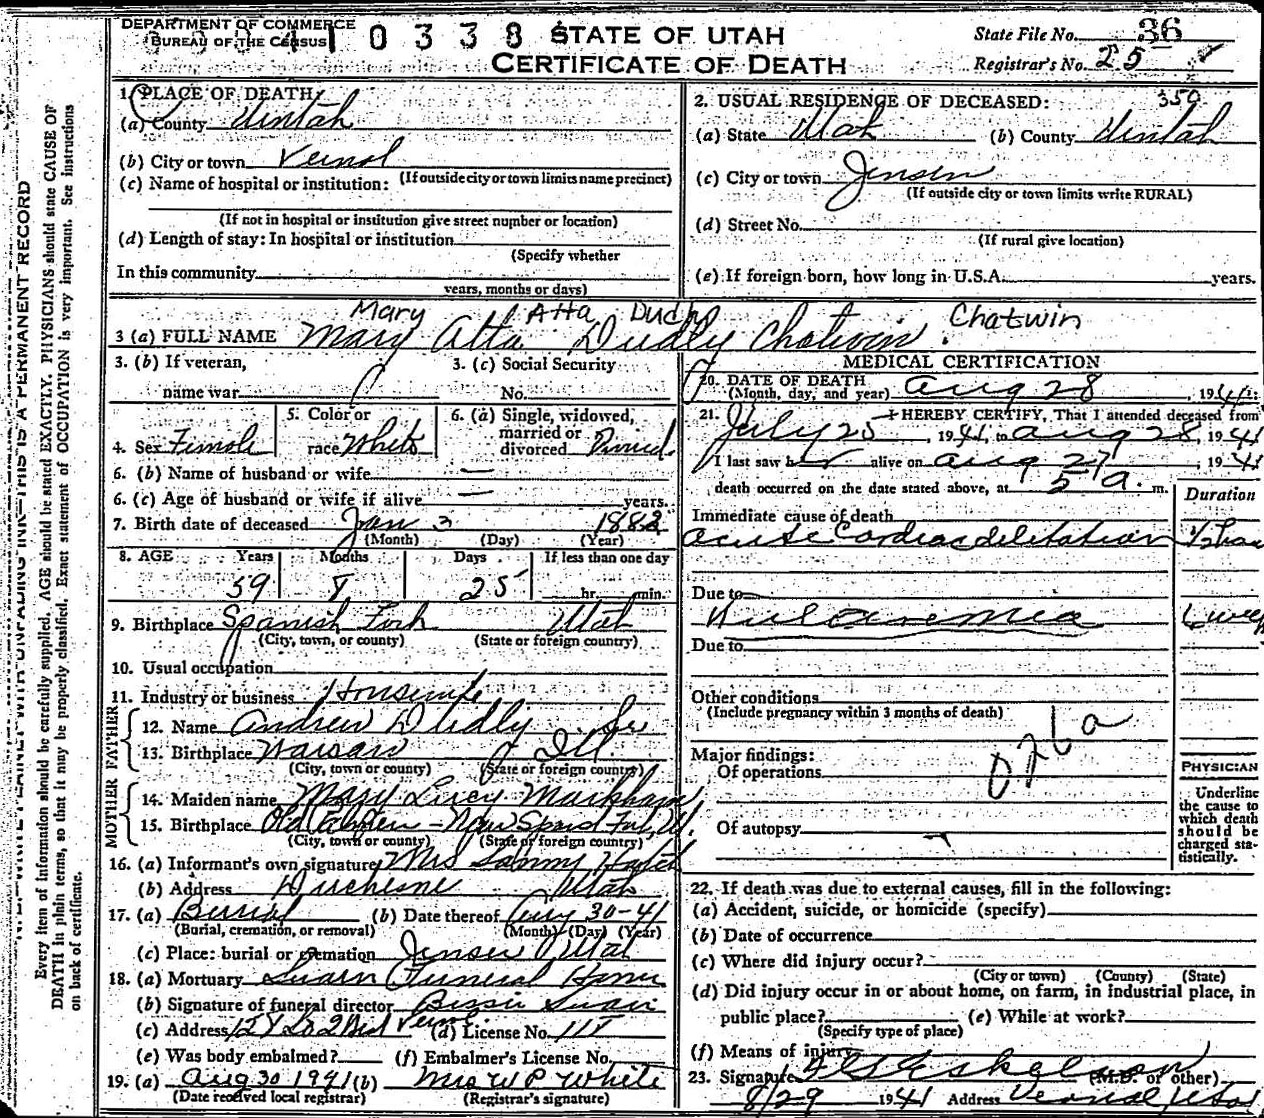 DEPARTMENT OF COMMERCE
BUREAU OF THE CENSUS
10338
STATE OF UTAH
CERTIFICATE OF DEATH
State File No. 36
Registrar's No. 25
Every item of information should be carefully supplied. AGE should be stated EXACTLY. PHYSICIANS should state CAUSE OF
DEATH in plain terms, so that it may be properly classified. Exact statement of OCCUPATION is very important. See instructions
on back of certificate.
1. PLACE OF DEATH:
(a) County Uintah
(b) City or town Vernal
(If outside city or town limits name precinct)
(c) Name of hospital or institution:
(If not in hospital or institution give street number or location)
(d) Length of stay: In hospital or institution
(Specify whether
In this community
years, months or days)
2. USUAL RESIDENCE OF DECEASED: 350
(a) State Utah (b) County Uintah
(c) City or town Jensen
(If outside city or town limits write RURAL)
(d) Street No.
(If rural give location)
(e) If foreign born, how long in U.S.A. years.
Mary Atta Dudly Chatwin
3 (a) FULL NAME Mary Atta Dudly Chatwin
3. (b) If veteran, name war
3. (c) Social Security No.
4. Sex Female
5. Color or race White
6. (a) Single, widowed, married or divorced
6. (b) Name of husband or wife —
6. (c) Age of husband or wife if alive — years.
7. Birth date of deceased Jan 3 1882
(Month) (Day) (Year)
8. AGE Years Months Days If less than one day
59 8 25 hr. min.
9. Birthplace Spanish Fork Utah
(City, town, or county) (State or foreign country)
10. Usual occupation
11. Industry or business Housewife
FATHER
12. Name Andrew Dudly Sr
13. Birthplace Warsaw Ill
(City, town or county) (State or foreign country)
MOTHER
14. Maiden name Mary Lucy Markham
15. Birthplace Old - Now Span Fork, U.
(City, town or county) (State or foreign country)
16. (a) Informant's own signature Mrs Sammy
(b) Address Duchesne Utah
17. (a) Burial (b) Date thereof Aug 30-41
(Burial, cremation, or removal) (Month) (Day) (Year)
(c) Place: burial or cremation Jensen Utah
18. (a) Mortuary Swain Funeral Home
(b) Signature of funeral director Swain
(c) Address Vernal (d) License No. 118
(e) Was body embalmed? (f) Embalmer's License No.
19. (a) Aug 30 1941 (b) Mrs W P White
(Date received local registrar) (Registrar's signature)
MEDICAL CERTIFICATION
20. DATE OF DEATH Aug 28, 1941
(Month, day, and year)
21. I HEREBY CERTIFY, That I attended deceased from
July 25, 1941, to Aug 28, 1941
I last saw her alive on Aug 27, 1941
death occurred on the date stated above, at 5 a. m.
Duration
Immediate cause of death
acute Cardiac dilitation 1/2 hour
Due to
6 weeks
Due to
Other conditions
(Include pregnancy within 3 months of death)
Major findings:
Of operations
Of autopsy
PHYSICIAN
Underline the cause to which death should be charged statistically.
22. If death was due to external causes, fill in the following:
(a) Accident, suicide, or homicide (specify)
(b) Date of occurrence
(c) Where did injury occur?
(City or town) (County) (State)
(d) Did injury occur in or about home, on farm, in industrial place, in
public place? (e) While at work?
(Specify type of place)
(f) Means of injury
23. Signature Eskelson (M.D. or other)
8/29 1941 Address Vernal Utah